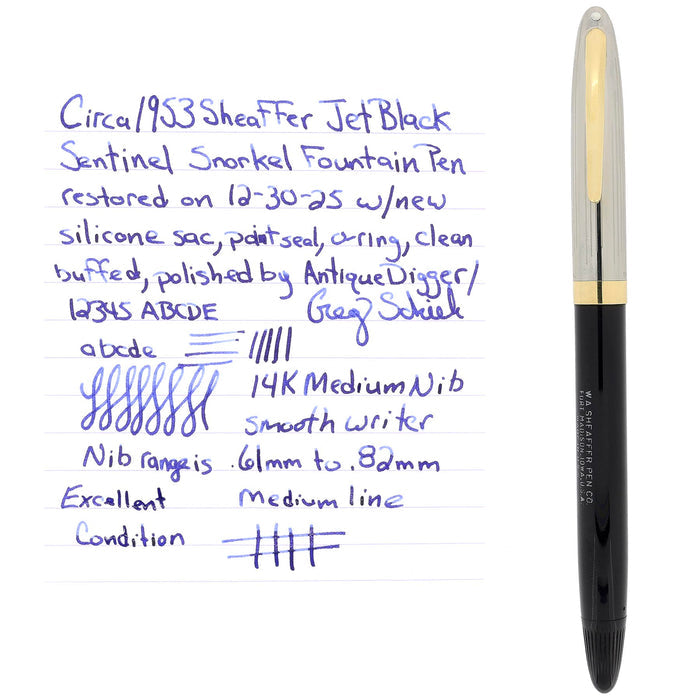 Circa 1953 Sheaffer Jet Black
Sentinel Snorkel Fountain Pen
restored on 12-30-25 w/new
silicone sac, point seal, o-ring, clean
buffed, polished by AntiqueDigger/
12345 ABCDE Greg
abcde
14K Medium Nib
smooth writer
Nib range is .61mm to .82mm
Excellent Medium line
Condition
W.A. SHEAFFER PEN CO.
FORT MADISON, IOWA, U.S.A.